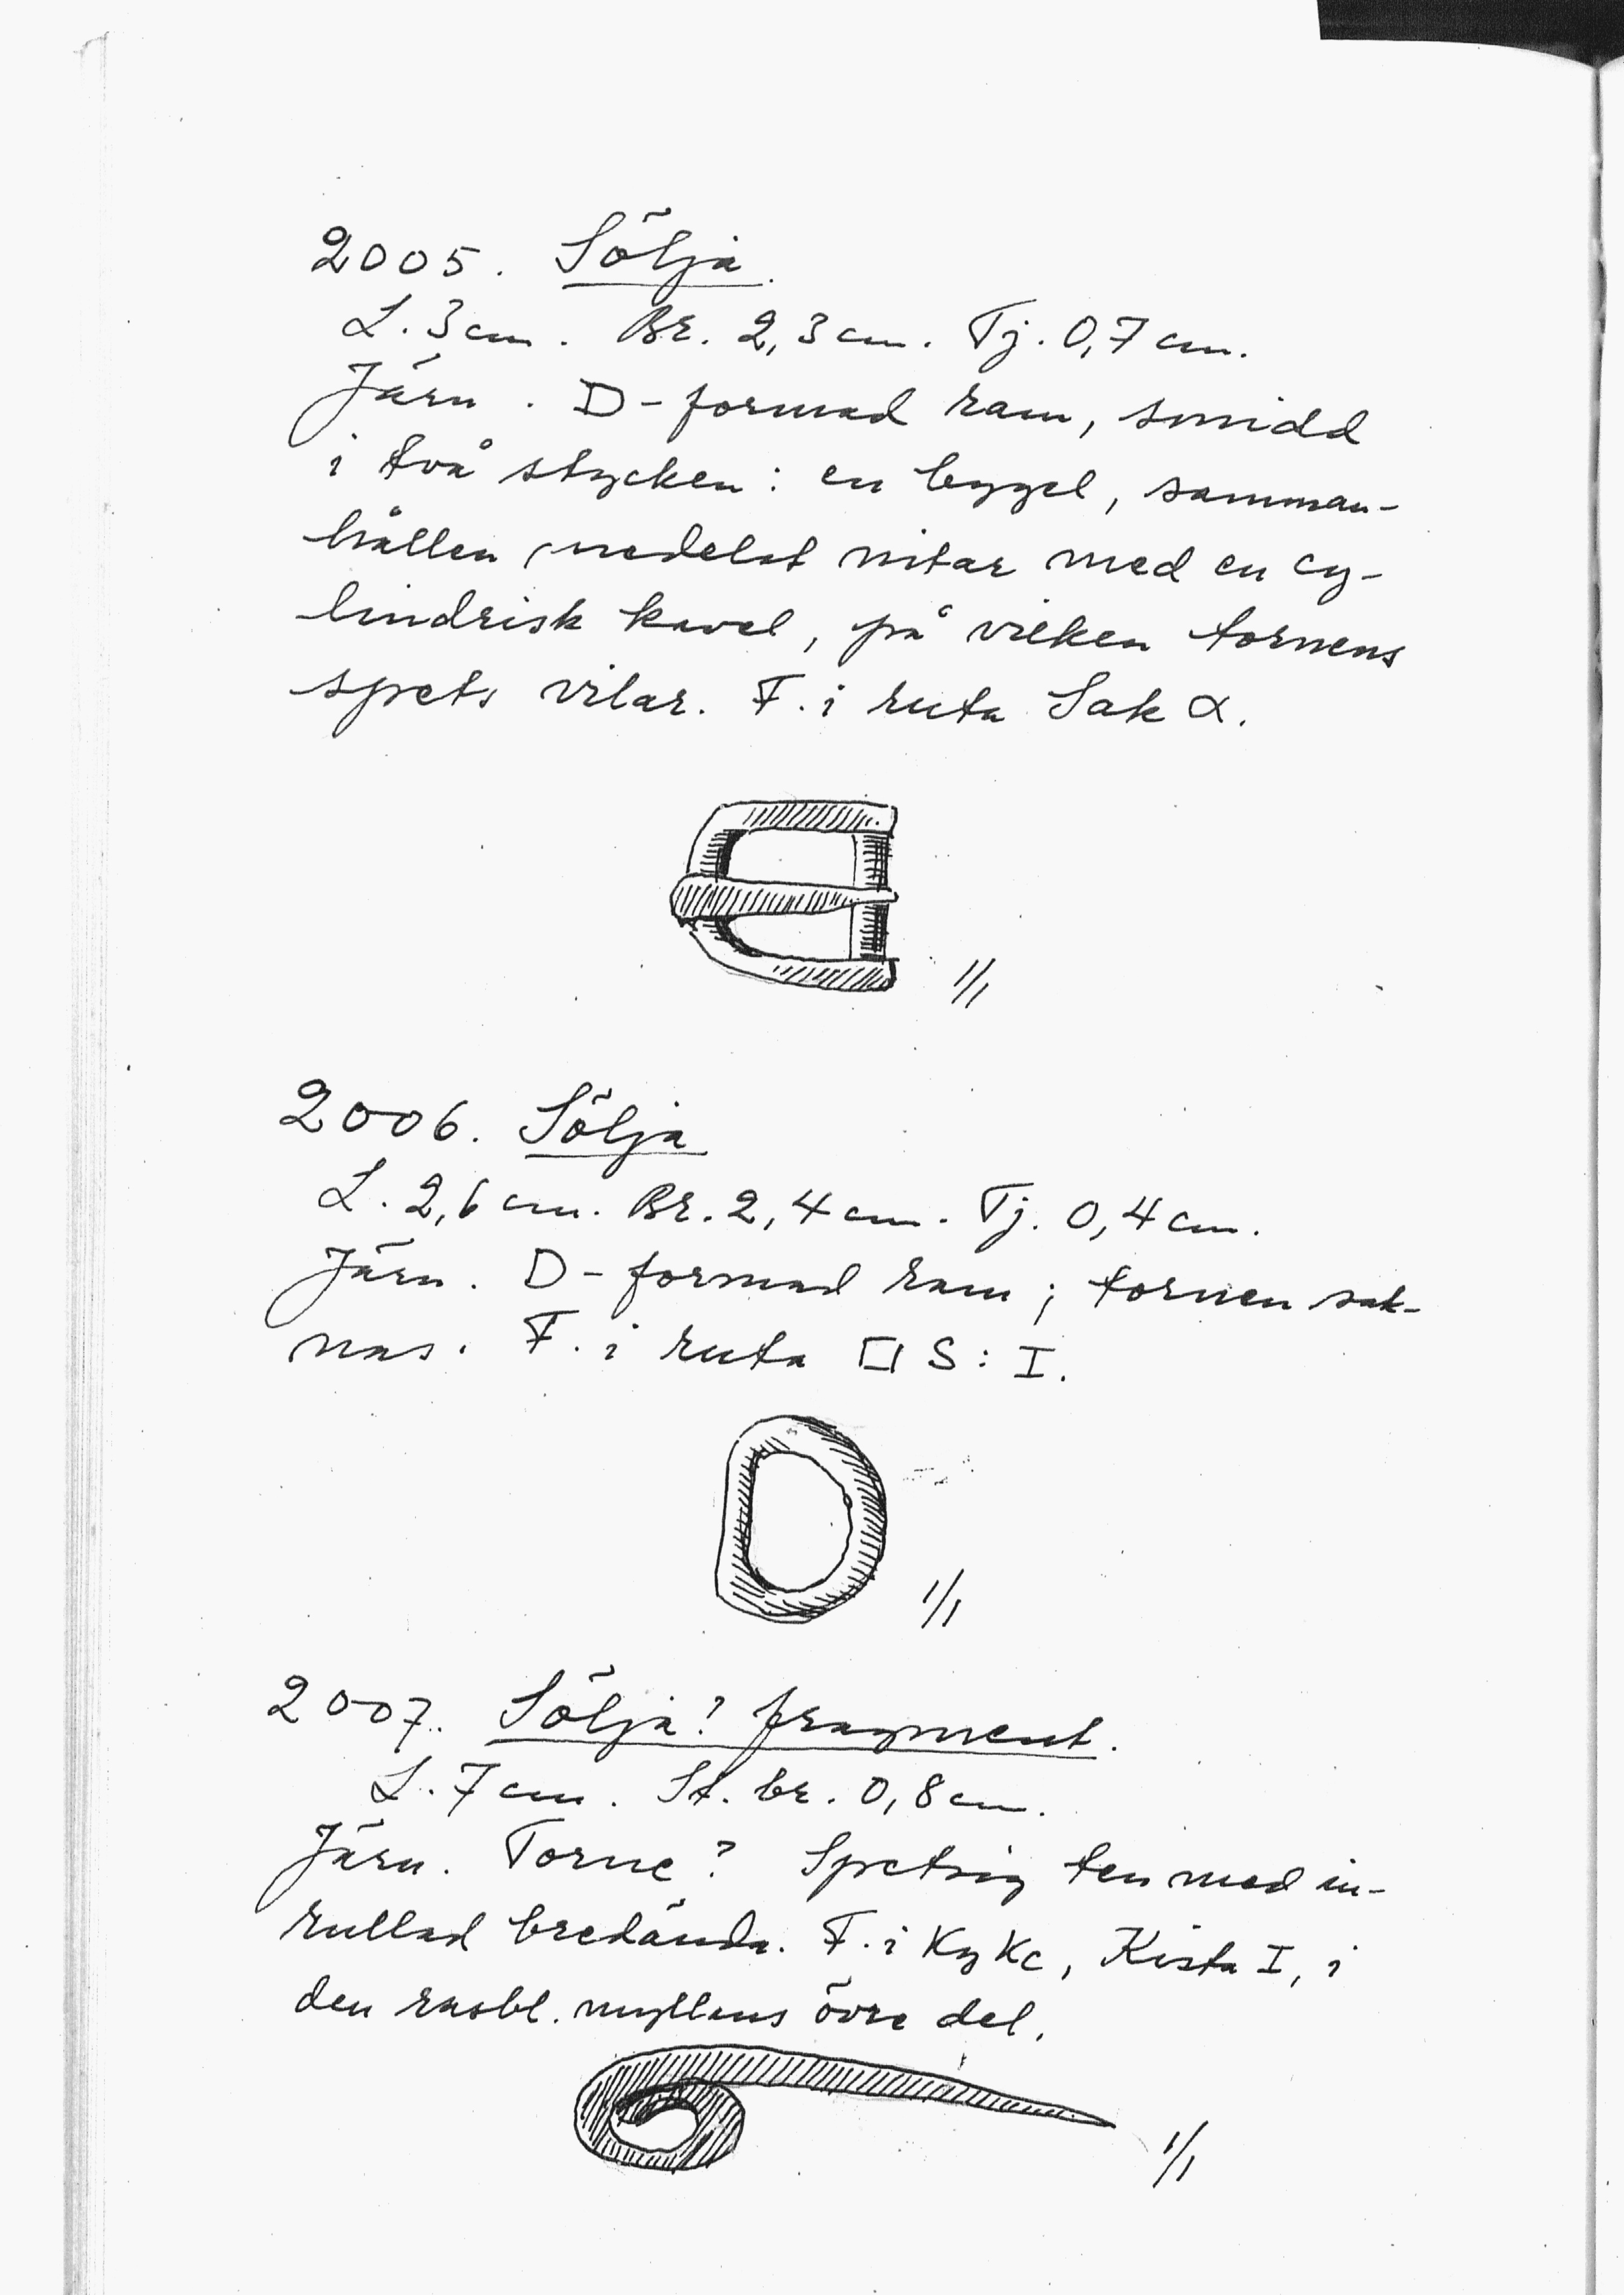 2005. Sölja.
L. 3 cm. Br. 2,3 cm. Tj. 0,7 cm.
Järn. D-formad ram, smidd
i två stycken: en bygel, samman-
hållen medelst nitar med en cy-
lindrisk kavel, på vilken tornens
spets vilar. F. i ruta Sak α.
1/1
2006. Sölja
L. 2,6 cm. Br. 2,4 cm. Tj. 0,4 cm.
Järn. D-formad ram; tornen sak-
nas. F. i ruta □ S: I.
1/1
2007. Sölja? fragment.
L. 7 cm. St. br. 0,8 cm.
Järn. Torne? Spetsig ten med in-
rullad bredända. F. i Ky Kc, Kista I, i
den rasbl. myllans övre del.
1/1